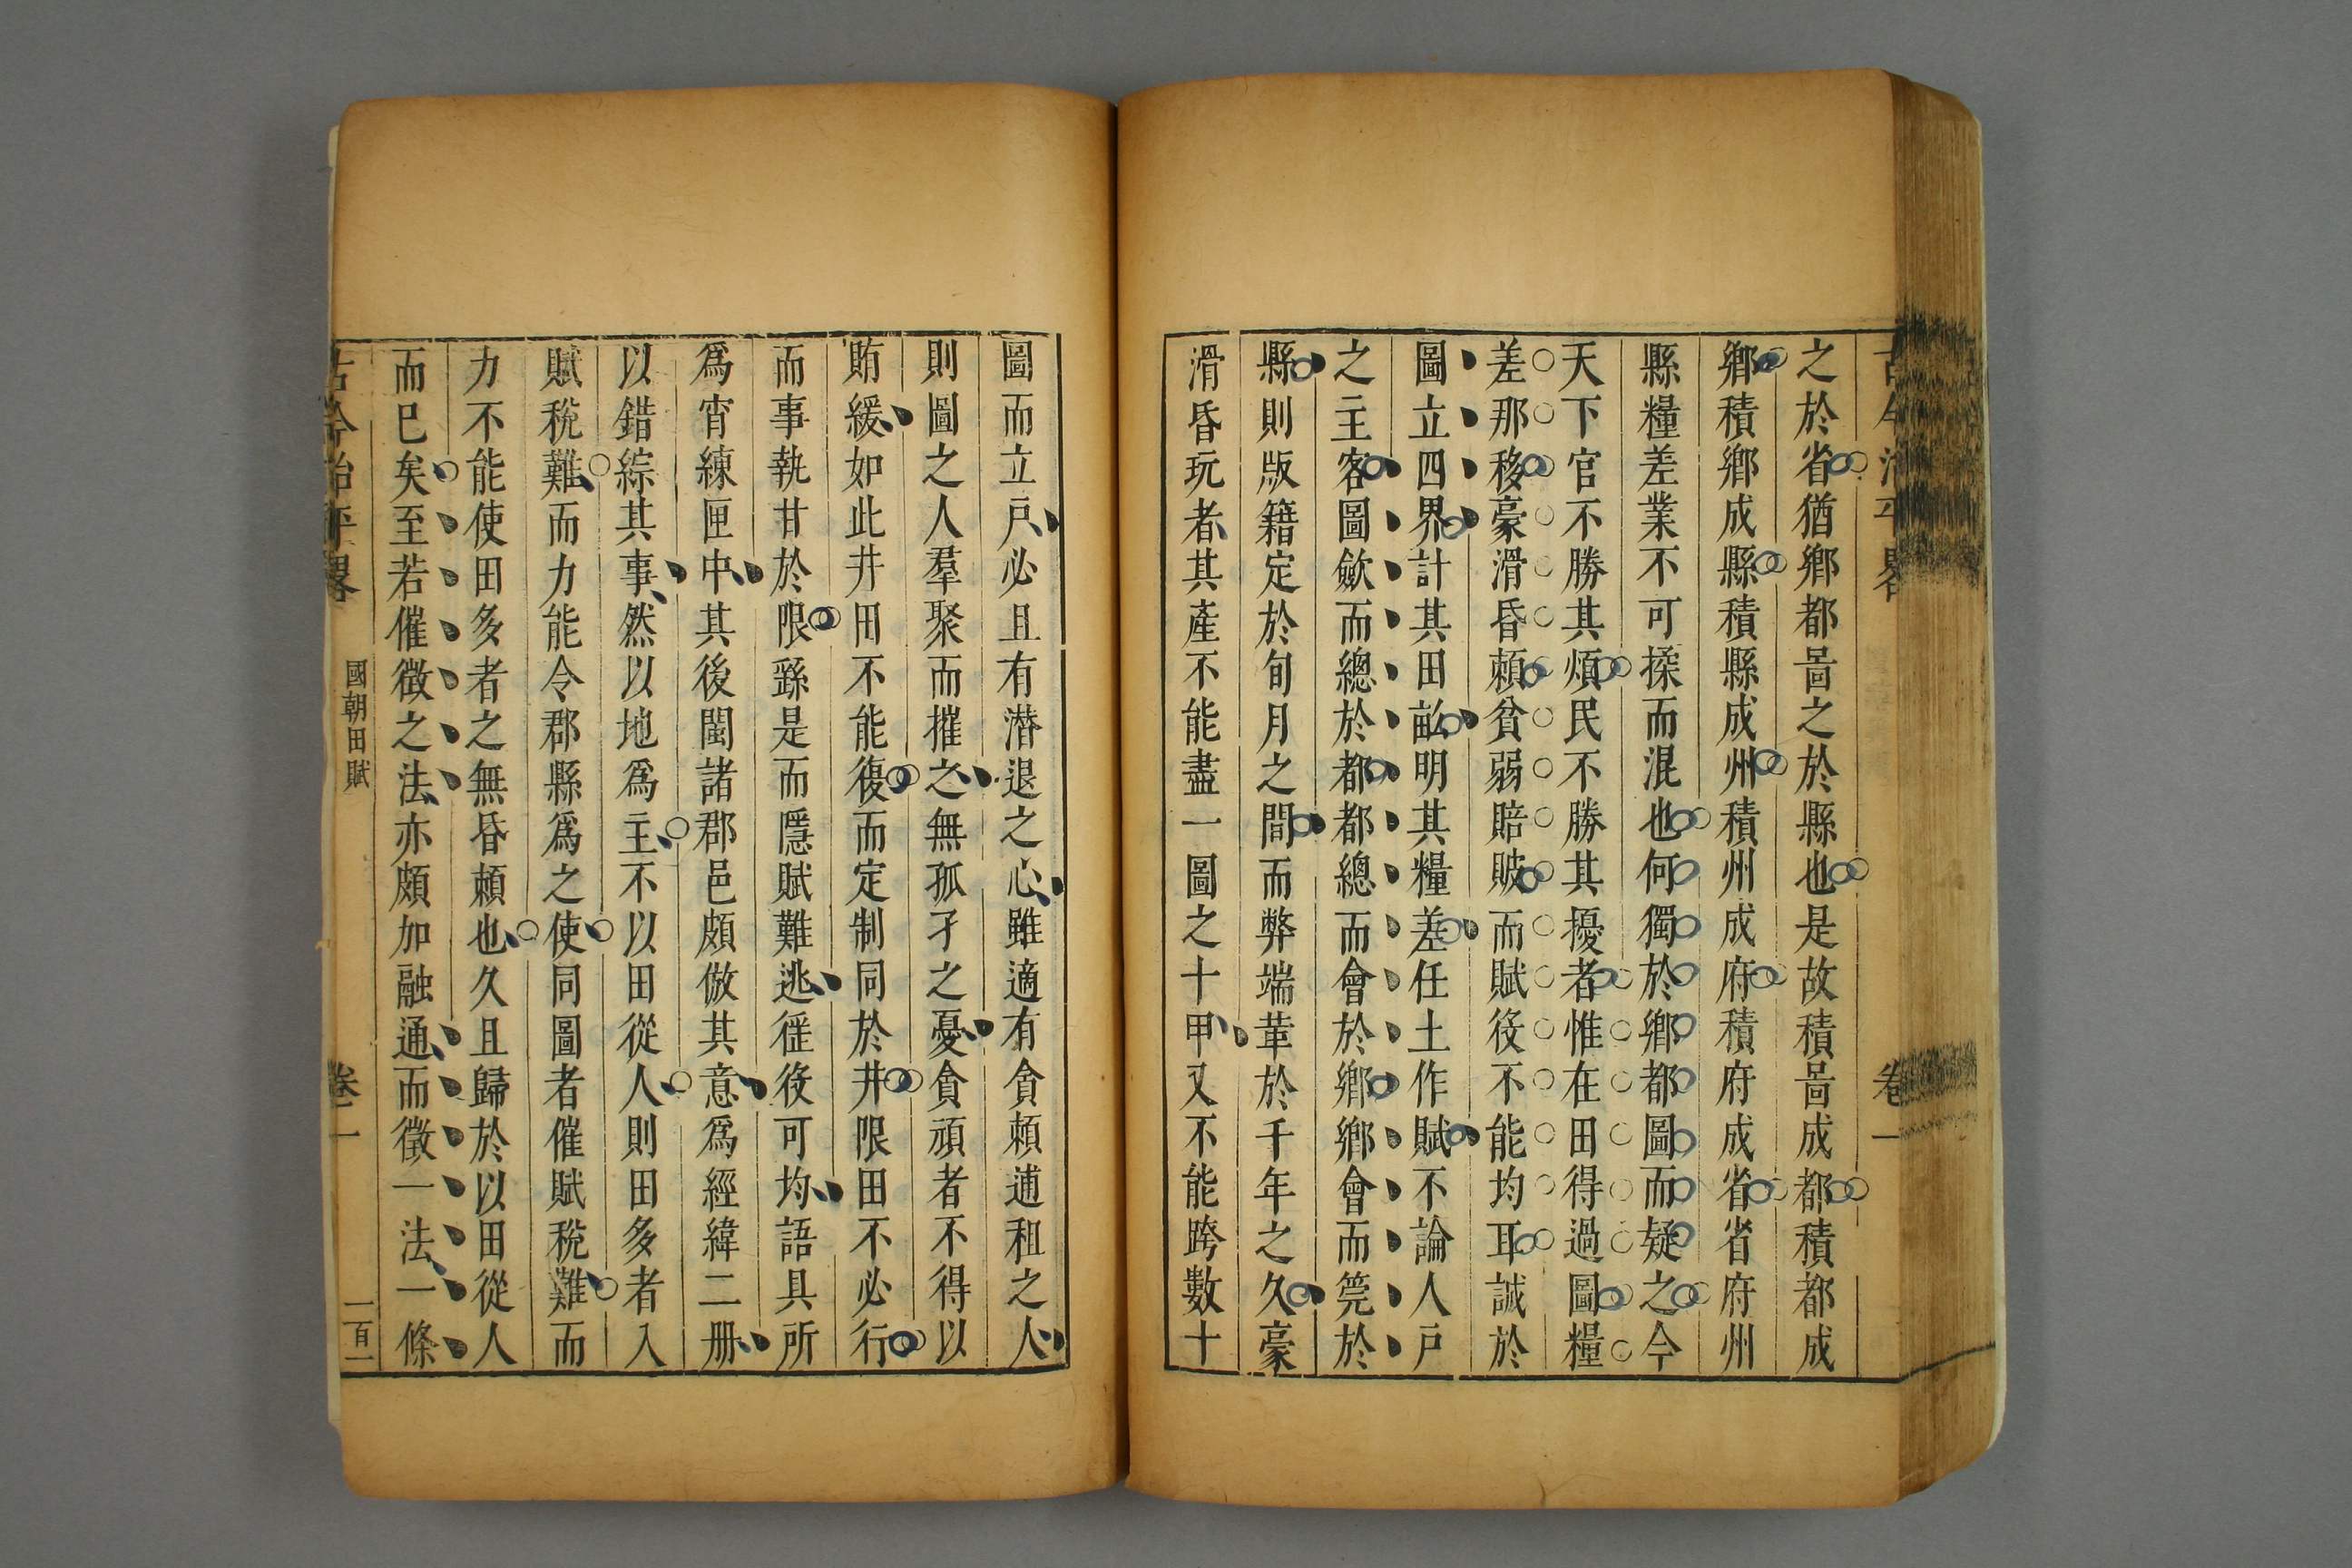 之於省猶鄉都啚之於縣也是故積啚成都積都成
鄉積鄉成縣積縣成州積州成府積府成省省府州
縣糧差業不可揉而混也何獨於鄉都圖而疑之今
天下官不勝其煩民不勝其擾者惟在田得過圖糧
差那移豪滑昏賴貧弱賠貱而賦役不能均耳誠於
圖立四界計其田畝明其糧差任土作賦不論人戶
之主客圖歛而總於都都總而會於鄉鄉會而筦於
縣則版籍定於旬月之間而弊端革於千年之久豪
滑昏玩者其產不能盡一圖之十甲又不能跨數十
圖而立戶必且有潛退之心雖適有貪賴逋租之人
則圖之人羣聚而摧之無孤孑之憂貪頑者不得以
賄緩如此井田不能復而定制同於井限田不必行
而事執甘於限繇是而隱賦難逃徭役可均語具所
爲宵練匣中其後閩諸郡邑頗倣其意爲經緯二册
以錯綜其事然以地爲主不以田從人則田多者入
賦稅難而力能令郡縣爲之使同圖者催賦稅難而
力不能使田多者之無昏賴也久且歸於以田從人
而已矣至若催徵之法亦頗加融通而徵一法一條
古今治平畧
國朝田賦
卷一
一百一